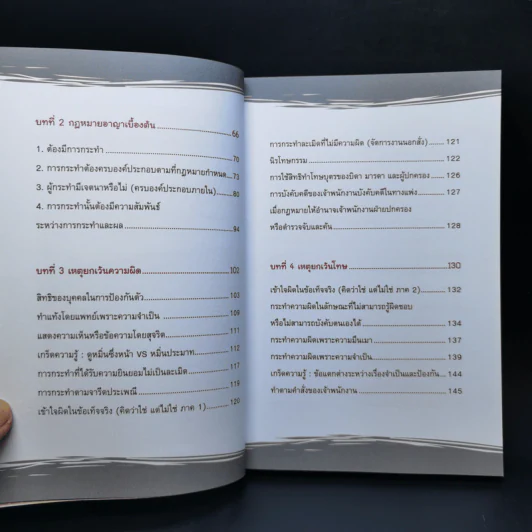 บทที่ 2 กฎหมายอาญาเบื้องต้น 66
1. ต้องมีการกระทำ 70
2. การกระทำต้องครบองค์ประกอบตามที่กฎหมายกำหนด 73
3. ผู้กระทำมีเจตนาหรือไม่ (ครบองค์ประกอบภายใน) 80
4. การกระทำนั้นต้องมีความสัมพันธ์
ระหว่างการกระทำและผล 94
บทที่ 3 เหตุยกเว้นความผิด 102
สิทธิของบุคคลในการป้องกันตัว 103
ทำแท้งโดยแพทย์เพราะความจำเป็น 109
แสดงความเห็นหรือข้อความโดยสุจริต 111
เกร็ดความรู้ : ดูหมิ่นซึ่งหน้า VS หมิ่นประมาท 112
การกระทำที่ได้รับความยินยอมไม่เป็นละเมิด 117
การกระทำตามจารีตประเพณี 119
เข้าใจผิดในข้อเท็จจริง (คิดว่าใช่ แต่ไม่ใช่ ภาค 1) 120
การกระทำละเมิดที่ไม่มีความผิด (จัดการงานนอกสั่ง) 121
นิรโทษกรรม 122
การใช้สิทธิทำโทษบุตรของบิดา มารดา และผู้ปกครอง 126
การบังคับคดีของเจ้าพนักงานบังคับคดีในทางแพ่ง 127
เมื่อกฎหมายให้อำนาจเจ้าพนักงานฝ่ายปกครอง
หรือตำรวจจับและค้น 128
บทที่ 4 เหตุยกเว้นโทษ 130
เข้าใจผิดในข้อเท็จจริง (คิดว่าใช่ แต่ไม่ใช่ ภาค 2) 132
กระทำความผิดในลักษณะที่ไม่สามารถรู้ผิดชอบ
หรือไม่สามารถบังคับตนเองได้ 134
กระทำความผิดเพราะความมึนเมา 137
กระทำความผิดเพราะความจำเป็น 139
เกร็ดความรู้ : ข้อแตกต่างระหว่างเรื่องจำเป็นและป้องกัน 144
ทำตามคำสั่งของเจ้าพนักงาน 145